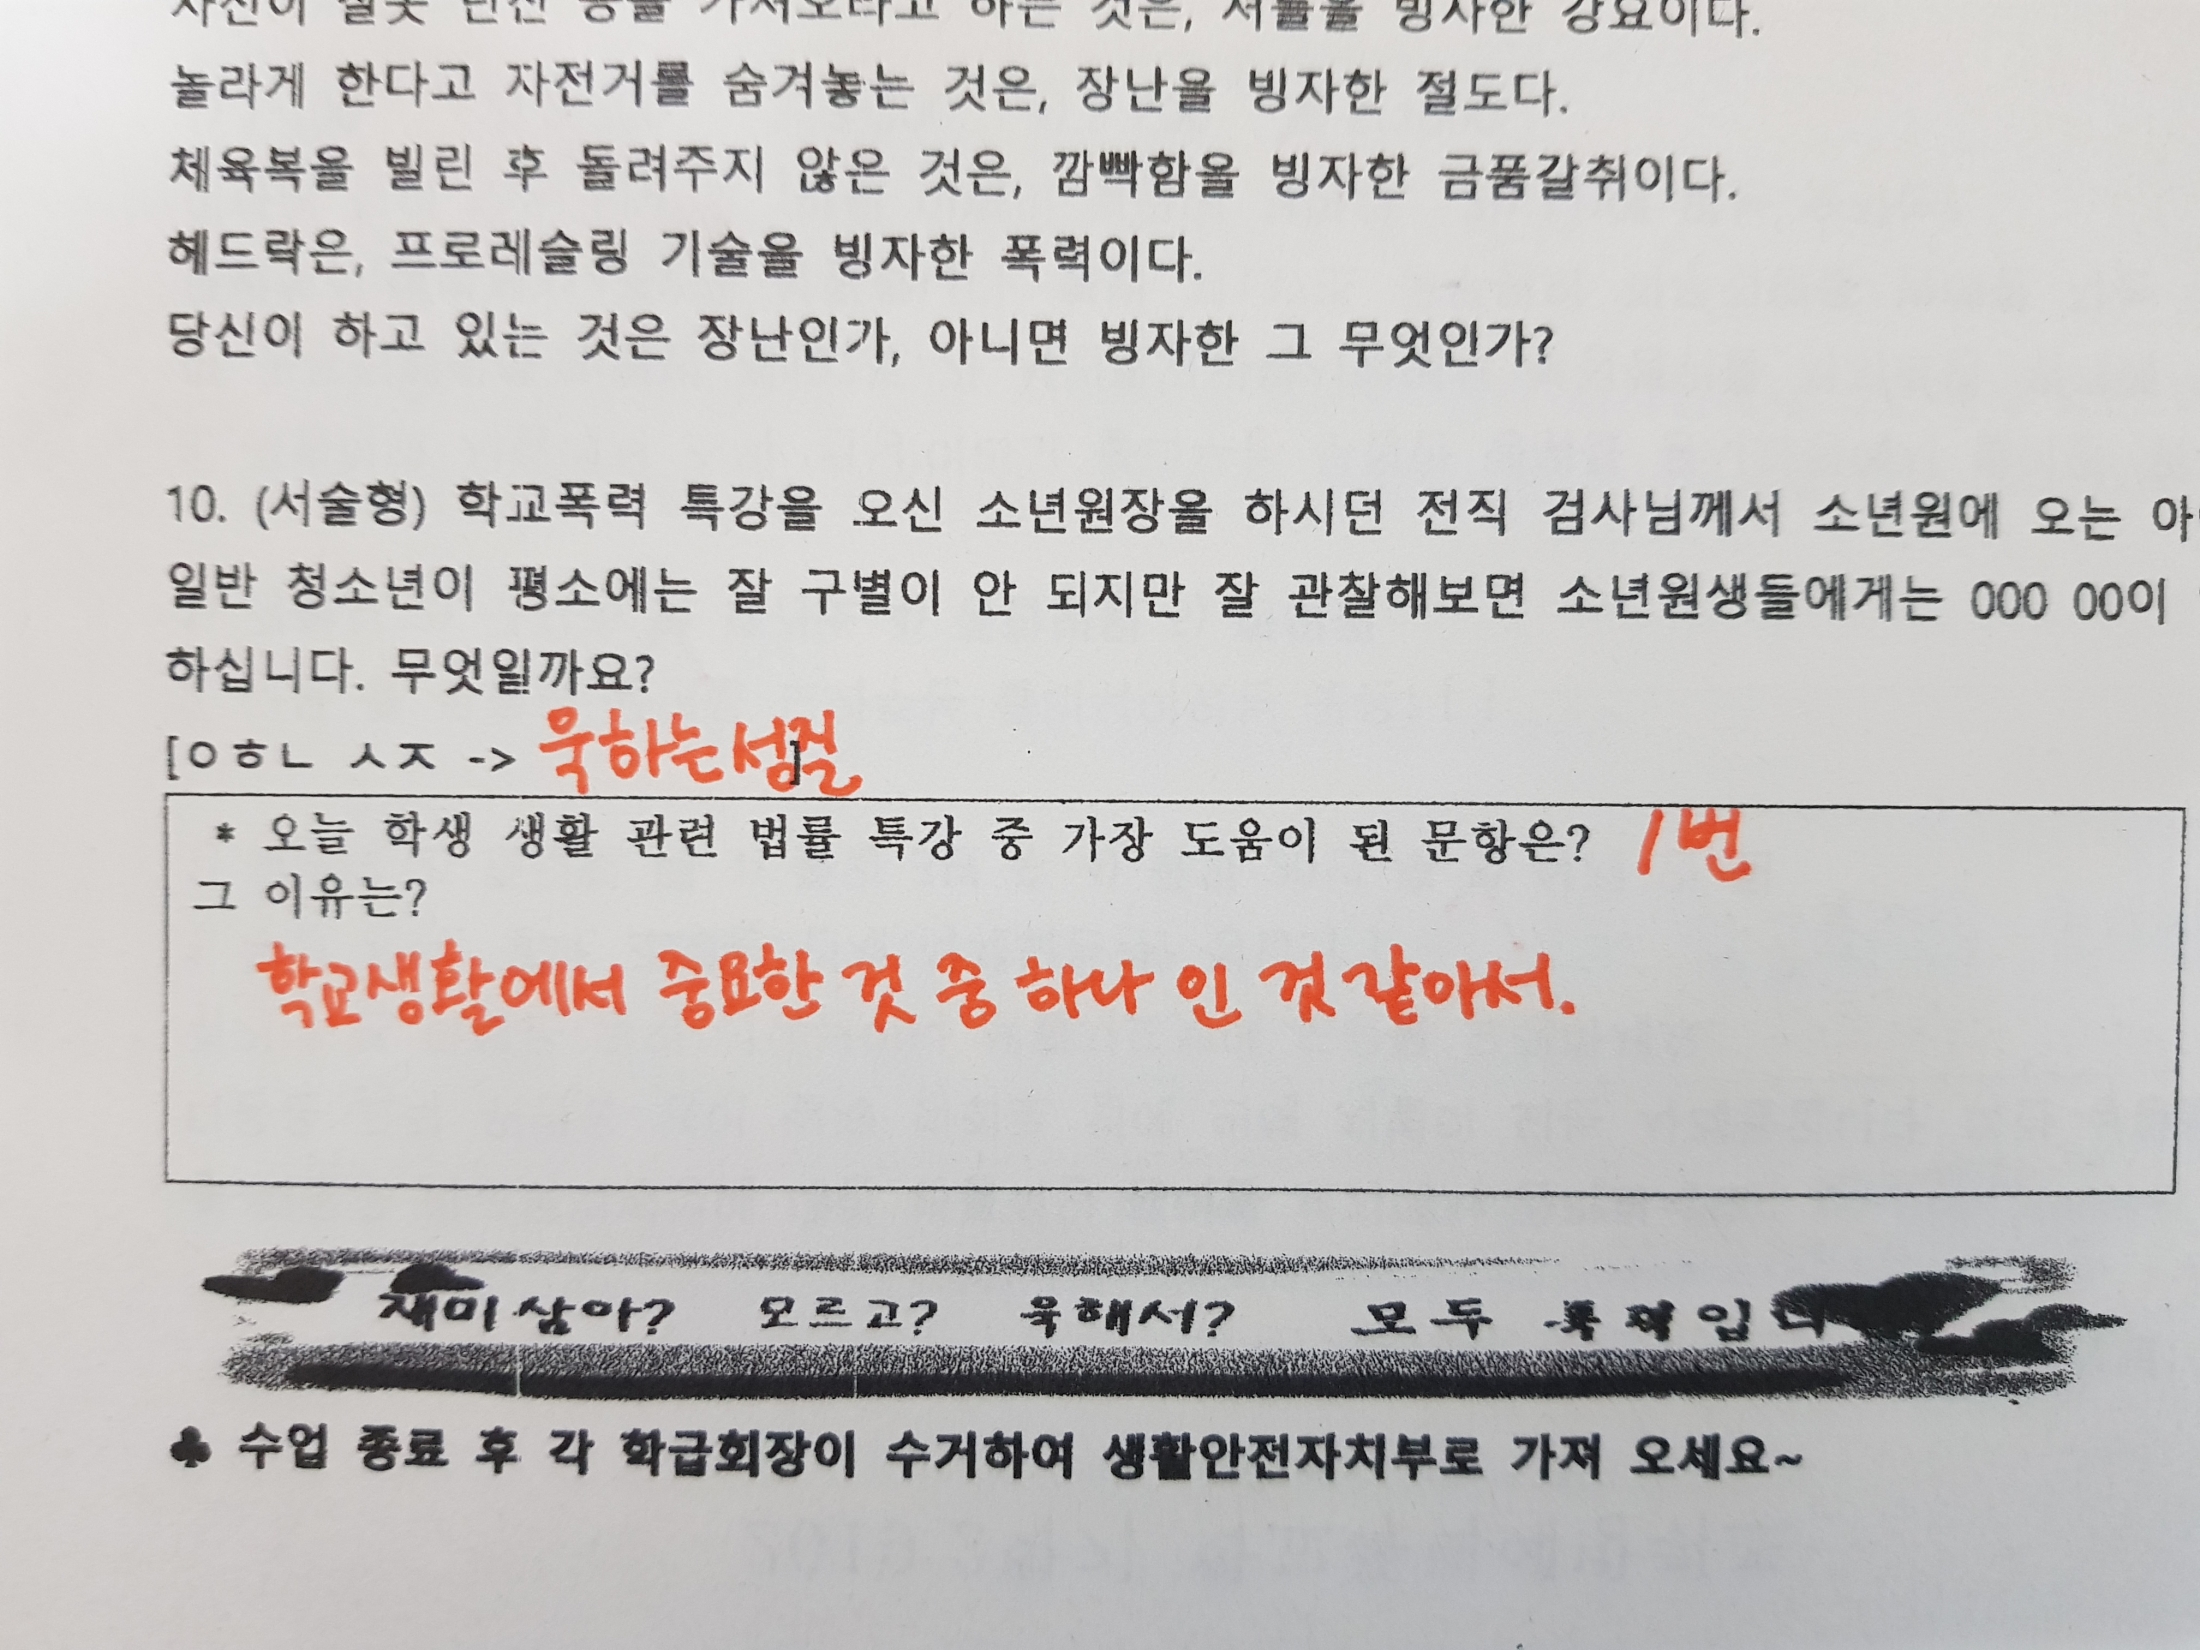 자신이 잘못 던진 공을 가져오라고 하는 것은, 셔틀을 빙자한 강요이다.
놀라게 한다고 자전거를 숨겨놓는 것은, 장난을 빙자한 절도다.
체육복을 빌린 후 돌려주지 않은 것은, 깜빡함을 빙자한 금품갈취이다.
헤드락은, 프로레슬링 기술을 빙자한 폭력이다.
당신이 하고 있는 것은 장난인가, 아니면 빙자한 그 무엇인가?
10. (서술형) 학교폭력 특강을 오신 소년원장을 하시던 전직 검사님께서 소년원에 오는 아
일반 청소년이 평소에는 잘 구별이 안 되지만 잘 관찰해보면 소년원생들에게는 OOO OO이
하십니다. 무엇일까요?
[ㅇㅎㄴ ㅅㅈ -> 욱하는성질]
* 오늘 학생 생활 관련 법률 특강 중 가장 도움이 된 문항은? 1번
그 이유는?
학교생활에서 중요한 것 중 하나 인 것 같아서.
재미삼아? 모르고? 욱해서? 모두 폭력입니
♣ 수업 종료 후 각 학급회장이 수거하여 생활안전자치부로 가져 오세요~